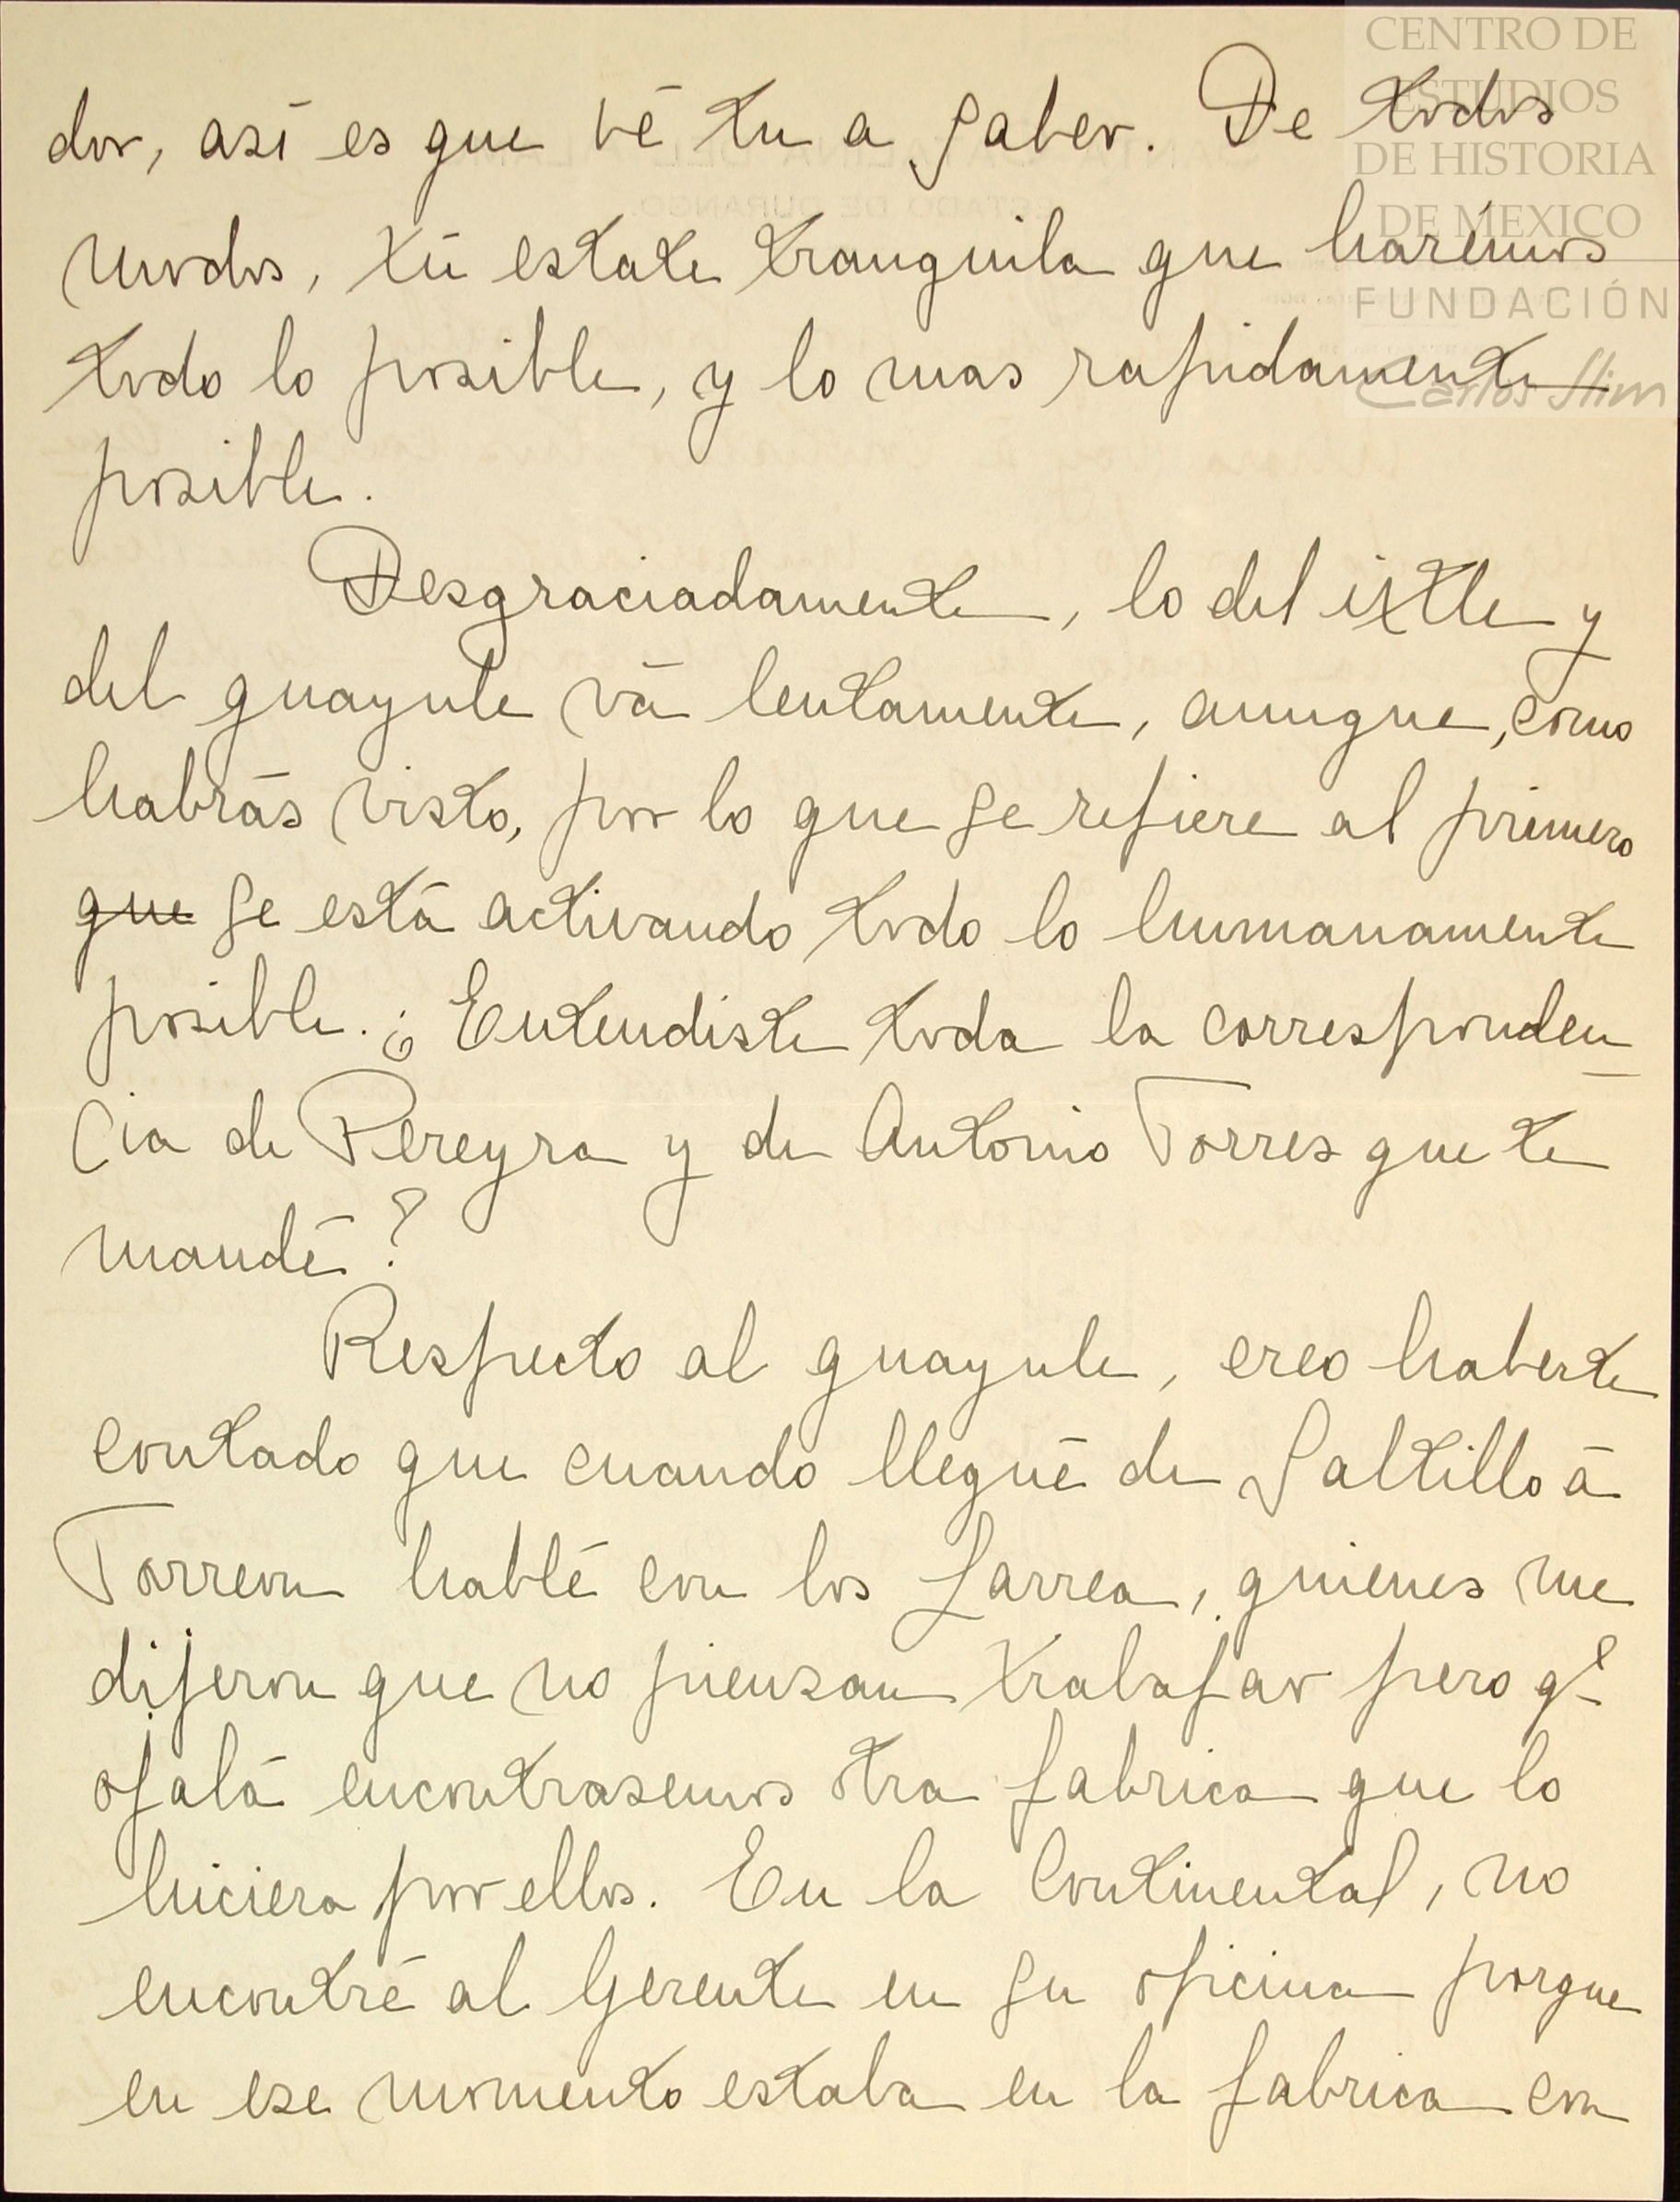 CENTRO DE
ESTUDIOS
DE HISTORIA
DE MEXICO
FUNDACIÓN
Carlos Slim
dor, así es que vé tu a saber. De todos
modos, tú estate tranquila que harémos
todo lo posible, y lo mas rapidamente
posible.
Desgraciadamente, lo del ixtle y
del guayule vá lentamente, aunque, como
habrás visto, por lo que se refiere al primero
que se está activando todo lo humanamente
posible. ¿Entendiste toda la corresponden
cia de Pereyra y de Antonio Torres que te
mandé?
Respecto al guayule, creo haberte
contado que cuando llegué de Saltillo á
Torreon hablé con los Larrea, quienes me
dijeron que no piensan trabajar pero qe
ojalá encontrasemos otra fabrica que lo
hiciera por ellos. En la Continental, no
encontré al Gerente en su oficina porque
en ese momento estaba en la fabrica con
ESTADO DE DURANGO